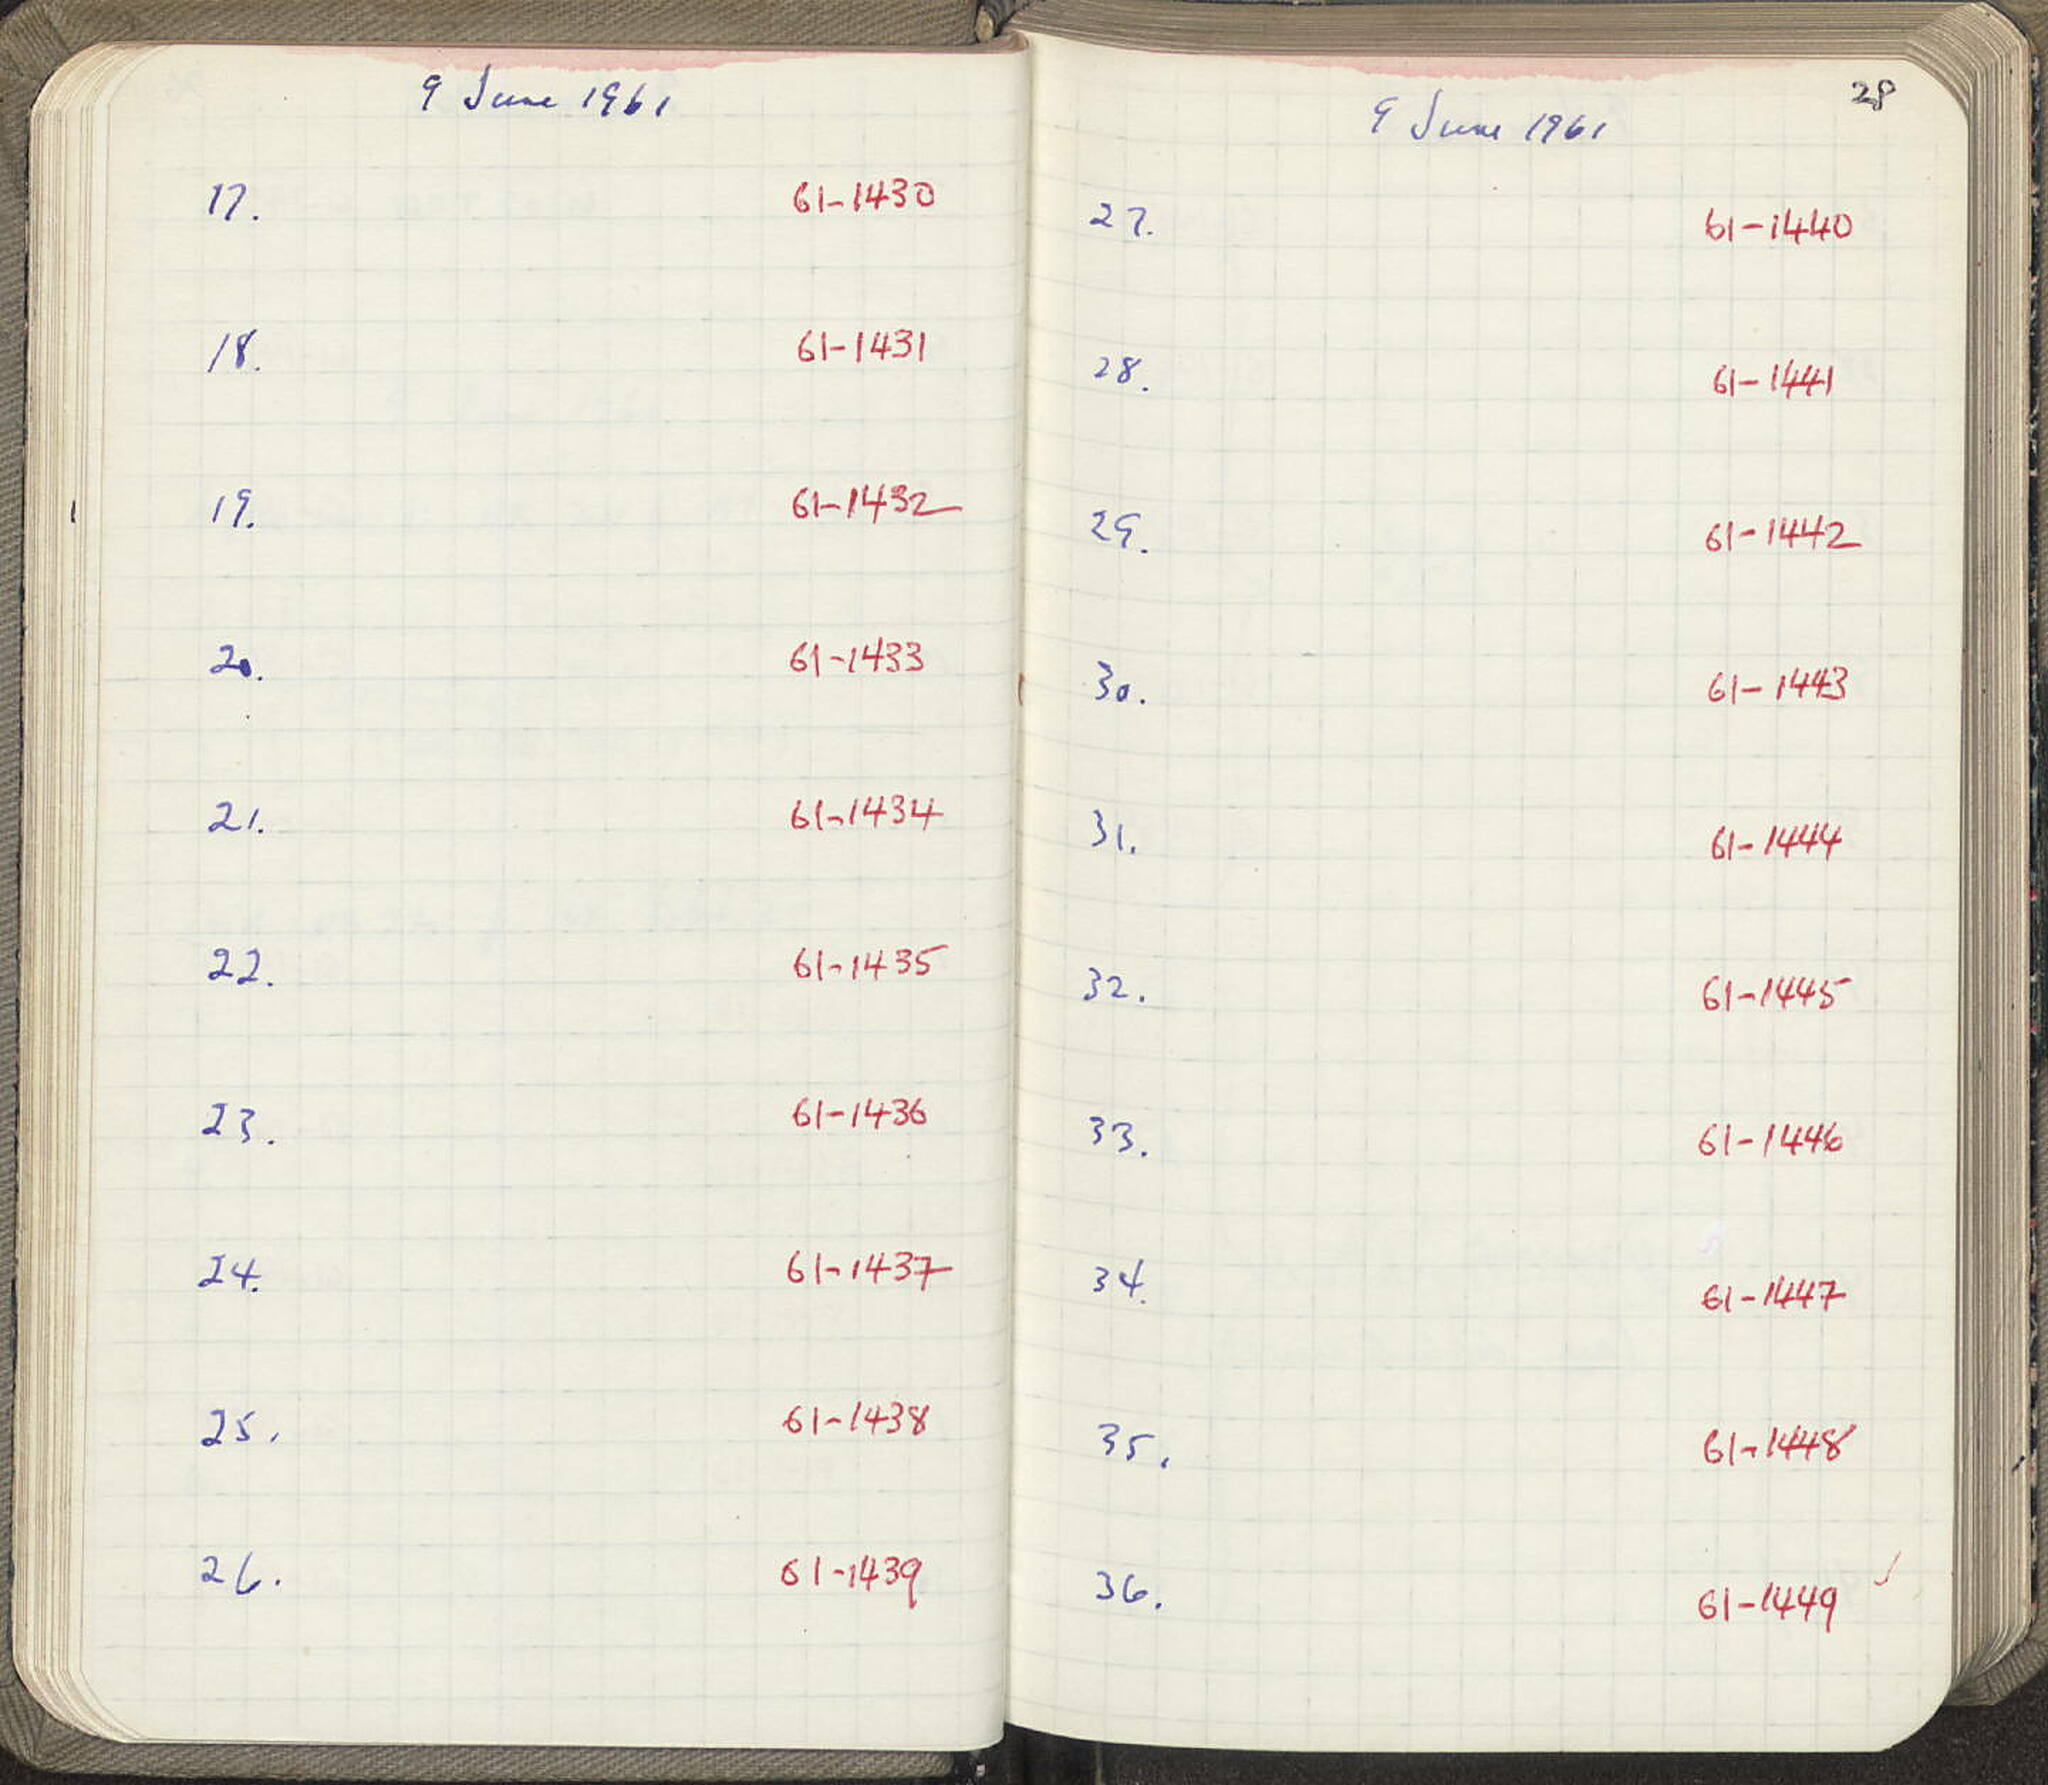 9 June 1961
17. 61-1430
18. 61-1431
19. 61-1432
20. 61-1433
21. 61-1434
22. 61-1435
23. 61-1436
24. 61-1437
25. 61-1438
26. 61-1439
28
9 June 1961
27. 61-1440
28. 61-1441
29. 61-1442
30. 61-1443
31. 61-1444
32. 61-1445
33. 61-1446
34. 61-1447
35. 61-1448
36. 61-1449 ✓